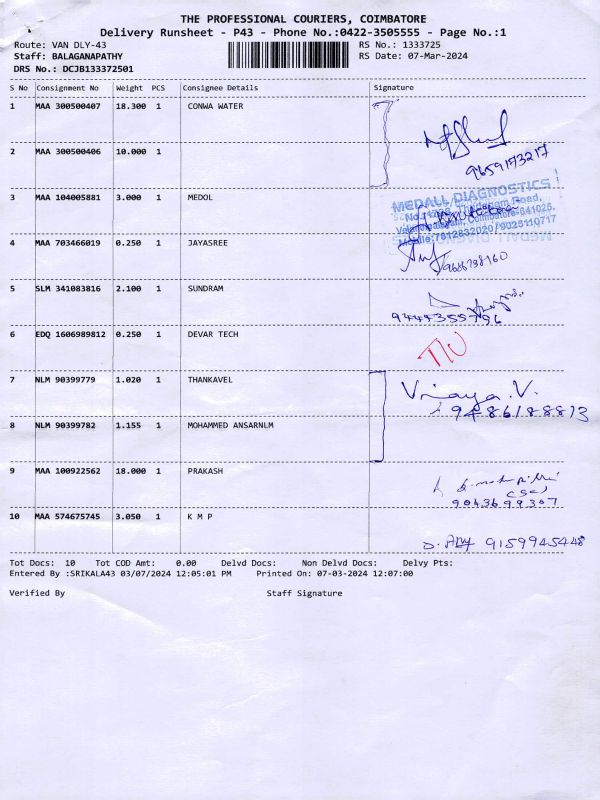 THE PROFESSIONAL COURIERS, COIMBATORE
Delivery Runsheet - P43 - Phone No.:0422-3505555 - Page No.:1
Route: VAN DLY-43
RS No.: 1333725
Staff: BALAGANAPATHY
RS Date: 07-Mar-2024
DRS No.: DCJB133372501
S No Consignment No Weight PCS Consignee Details Signature
1 MAA 300500407 18.300 1 CONWA WATER
2 MAA 300500406 10.000 1
9659173217
3 MAA 104005881 3.000 1 MEDOL
MEDALL DIAGNOSTICS
Road,
Coimbatore-641025.
Mobile:7812832020/9025110717
4 MAA 703466019 0.250 1 JAYASREE
5 SLM 341083816 2.100 1 SUNDRAM
9444355796
6 EDQ 1606989812 0.250 1 DEVAR TECH
7 NLM 90399779 1.020 1 THANKAVEL
Vijaya.V.
9486188813
8 NLM 90399782 1.155 1 MOHAMMED ANSARNLM
9 MAA 100922562 18.000 1 PRAKASH
9043699307
10 MAA 574675745 3.050 1 K M P
9159945448
Tot Docs: 10 Tot COD Amt: 0.00 Delvd Docs: Non Delvd Docs: Delvy Pts:
Entered By :SRIKALA43 03/07/2024 12:05:01 PM Printed On: 07-03-2024 12:07:00
Verified By Staff Signature